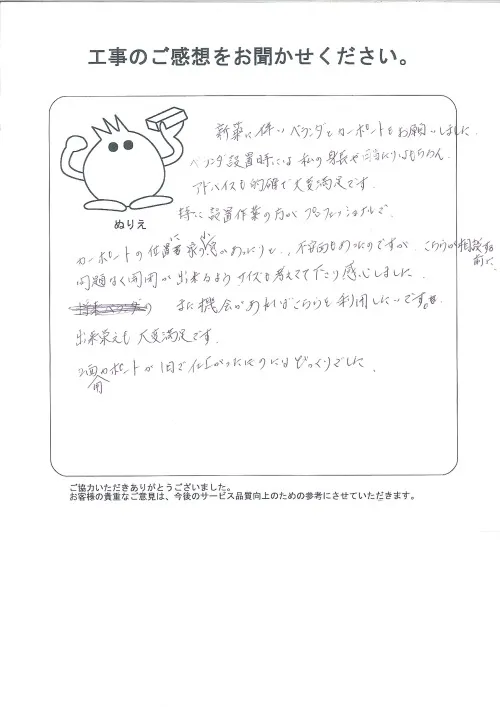 工事のご感想をお聞かせください。
ぬりえ
新築に伴いベランダとカーポートをお願いしました。
ベランダ設置時には私の身長や もちろん、
アドバイスも的確で大変満足です。
特に設置作業の方がプロフェッショナルで、
カーポートの位置に があったりと、不安面もあったのですが、こちらが相談する前に、
問題なく開閉が出来るようサイズも考えて下さり感心しました。
また機会があればこちらを利用したいです。
出来栄えも大変満足です。
2面カーポートが1日で仕上がったのにはびっくりでした。
用
ご協力いただきありがとうございました。
お客様の貴重なご意見は、今後のサービス品質向上のための参考にさせていただきます。